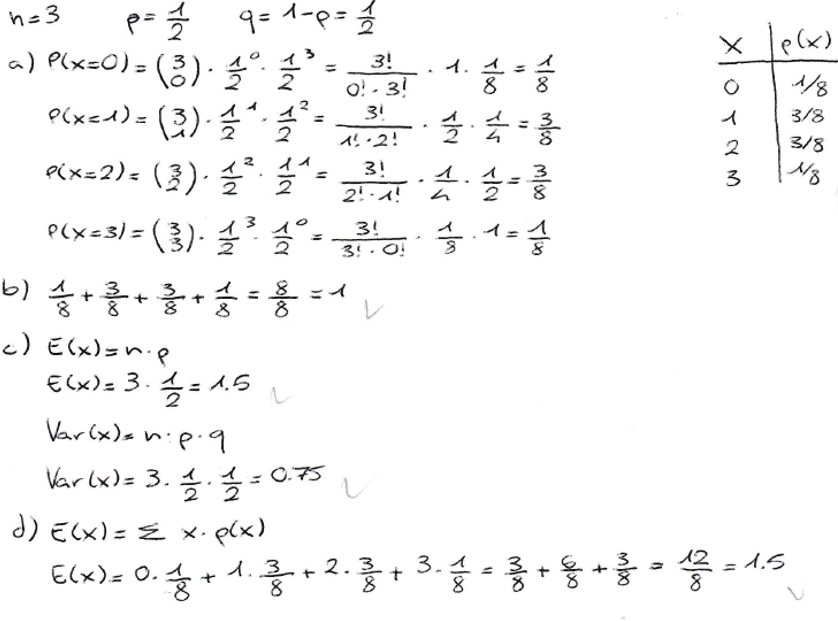 n=3 p=1/2 q=1-p=1/2
a) P(x=0)=(3 0)·1/2^0·1/2^3=3!/(0!·3!)·1·1/8=1/8
P(x=1)=(3 1)·1/2^1·1/2^2=3!/(1!·2!)·1/2·1/4=3/8
P(x=2)=(3 2)·1/2^2·1/2^1=3!/(2!·1!)·1/4·1/2=3/8
P(x=3)=(3 3)·1/2^3·1/2^0=3!/(3!·0!)·1/8·1=1/8
x p(x)
0 1/8
1 3/8
2 3/8
3 1/8
b) 1/8+3/8+3/8+1/8=8/8=1
c) E(x)=n·p
E(x)=3·1/2=1.5
Var(x)=n·p·q
Var(x)=3·1/2·1/2=0.75
d) E(x)=Σ x·p(x)
E(x)=0·1/8+1·3/8+2·3/8+3·1/8=3/8+6/8+3/8=12/8=1.5